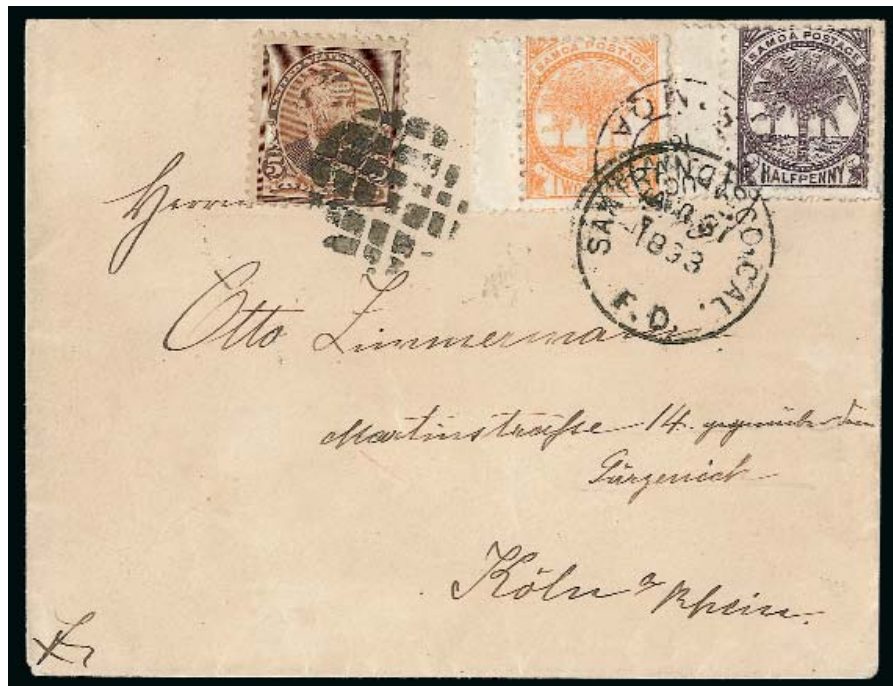 SAMOA POSTAGE
SAMOA POSTAGE
HALFPENNY
SAN FRANCISCO, CAL.
1893
F. D.
Herrn
Otto Zimmermann
Martinstraße 14. gegenüber dem
Gürzenich
Köln a/ Rhein.